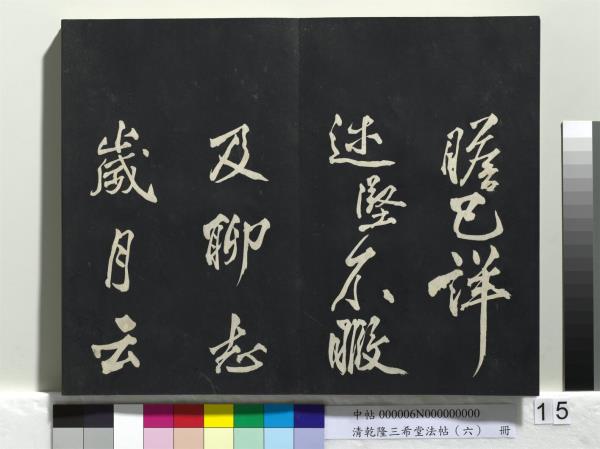 瞻已詳
述堅不暇
及聊志
歲月云
中帖 000006N000000000
清乾隆三希堂法帖(六) 冊
15